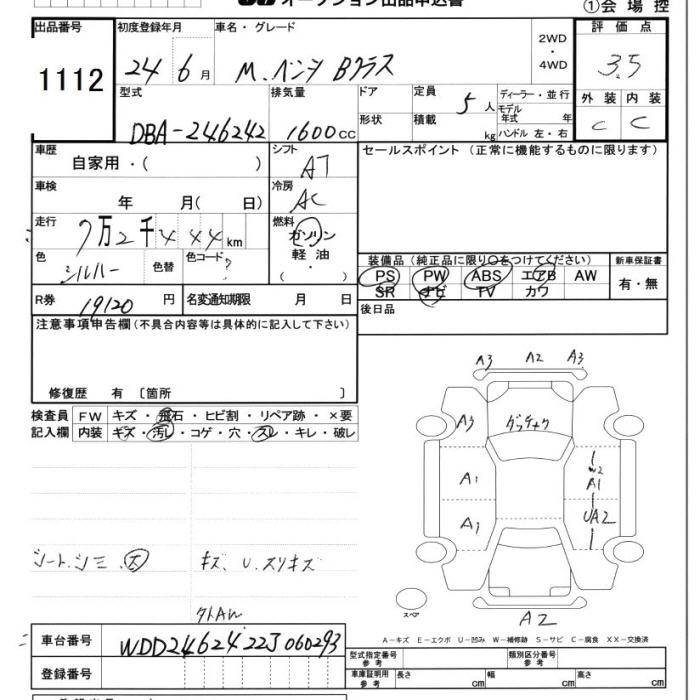 オークション出品申込書
①会場控
出品番号 1112
初度登録年月 24年 6月
車名・グレード M.ベンツ Bクラス
2WD・4WD
評価点 3.5
型式 DBA-246242
排気量 1600cc
ドア
形状
定員 5人
積載 kg
ディーラー・並行
モデル年式 年
ハンドル 左・右
外装 C
内装 C
車歴 自家用・( )
シフト AT
セールスポイント (正常に機能するものに限ります)
車検 年 月( 日)
冷房 AC
走行 7万2千444km
燃料 ガソリン
軽油・( )
色 シルバー
色替
色コード ?
装備品(純正品に限り○をつけてください)
新車保証書
PS PW ABS エアB AW
SR ナビ TV カワ
有・無
R券 19120円
名変通知期限 月 日
後日品
注意事項申告欄(不具合内容等は具体的に記入して下さい)
修復歴 有 〔箇所 〕
検査員記入欄
FW キズ・飛石・ヒビ割・リペア跡・×要
内装 キズ・汚レ・コゲ・穴・スレ・キレ・破レ
A3 A2 A3
A3
A1
A1
W2
A1
UA2
A2
スペア
シート、シミ、大
キズ、U、スリキズ
A-キズ E-エクボ U-凹み W-補修跡 S-サビ C-腐食 XX-交換済
車台番号 WDD2462422J060293
登録番号
型式指定番号 参考
類別区分番号 参考
車庫証明用 参考 長さ cm 幅 cm 高さ cm